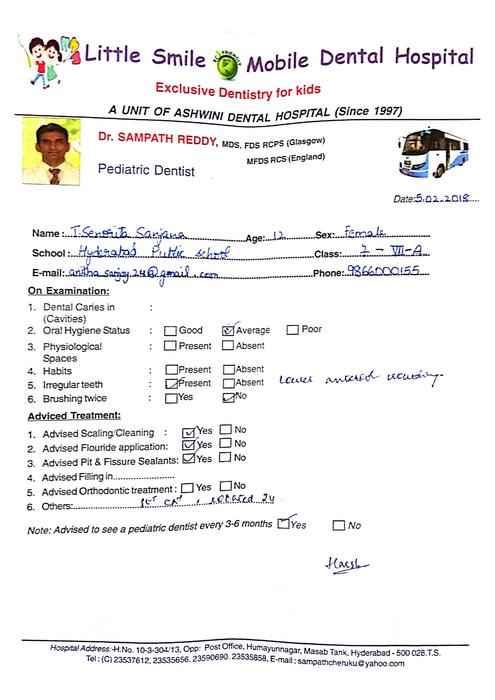 Little Smile Mobile Dental Hospital
Exclusive Dentistry for kids
A UNIT OF ASHWINI DENTAL HOSPITAL (Since 1997)
Dr. SAMPATH REDDY, MDS, FDS RCPS (Glasgow)
MFDS RCS (England)
Pediatric Dentist
Date: 5.02.2018
Name: T. Senorita Sanjana Age: 12 Sex: Female
School: Hyderabad Public school Class: 7 - VII-A
E-mail: anitha.sanjay.24@gmail.com Phone: 9866000155
On Examination:
1. Dental Caries in :
(Cavities)
2. Oral Hygiene Status : Good Average Poor
3. Physiological : Present Absent
Spaces
4. Habits : Present Absent
5. Irregular teeth : Present Absent Lower
6. Brushing twice : Yes No
Adviced Treatment:
1. Advised Scaling/Cleaning : Yes No
2. Advised Flouride application: Yes No
3. Advised Pit & Fissure Sealants: Yes No
4. Advised Filling in
5. Advised Orthodontic treatment : Yes No
6. Others:
Note: Advised to see a pediatric dentist every 3-6 months Yes No
Hospital Address :-H.No. 10-3-304/13, Opp: Post Office, Humayunnagar, Masab Tank, Hyderabad - 500 028.T.S.
Tel : (C) 23537612, 23535656, 23590690. 23535858, E-mail : sampathcheruku@yahoo.com